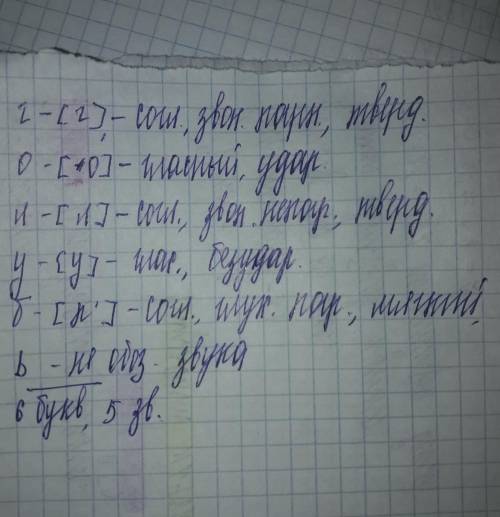 г - [г], - согл., звон. парн., тверд.
о - [о] - гласный, удар.
л - [л] - согл., звон. непар., тверд.
у - [у] - глас., безудар.
б - [п'] - согл., глух. пар., мягкий,
ь - не обоз. звука
6 букв, 5 зв.